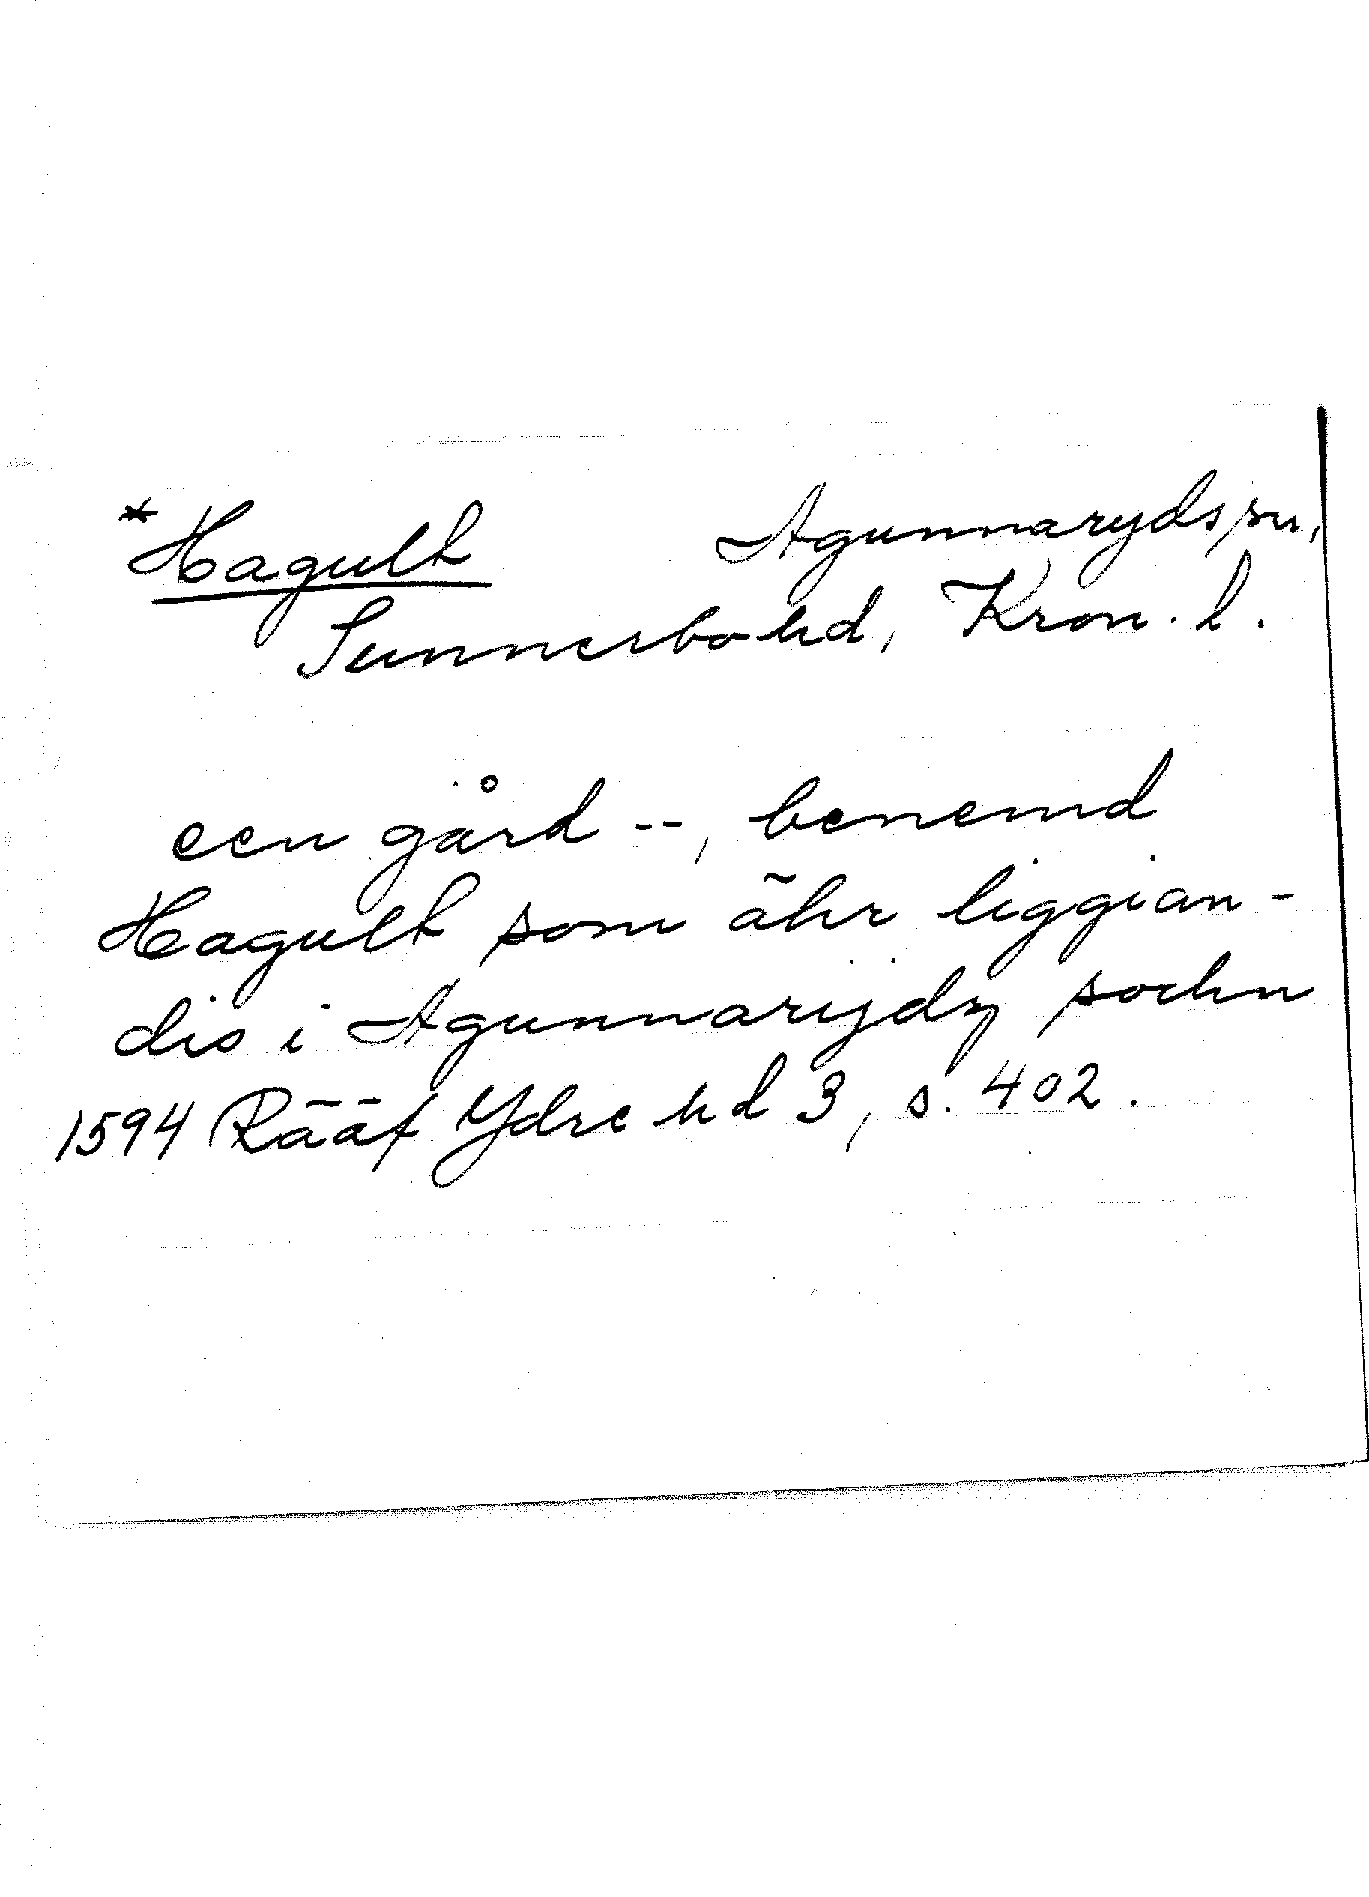 *Hagult Agunnaryds sn,
Sunnerbo hd, Kron. l.
een gård --, benemd
Hagult som ähr liggian-
dis i Agunnarÿdz sochn
1594 Rääf Ydre hd 3, s. 402.